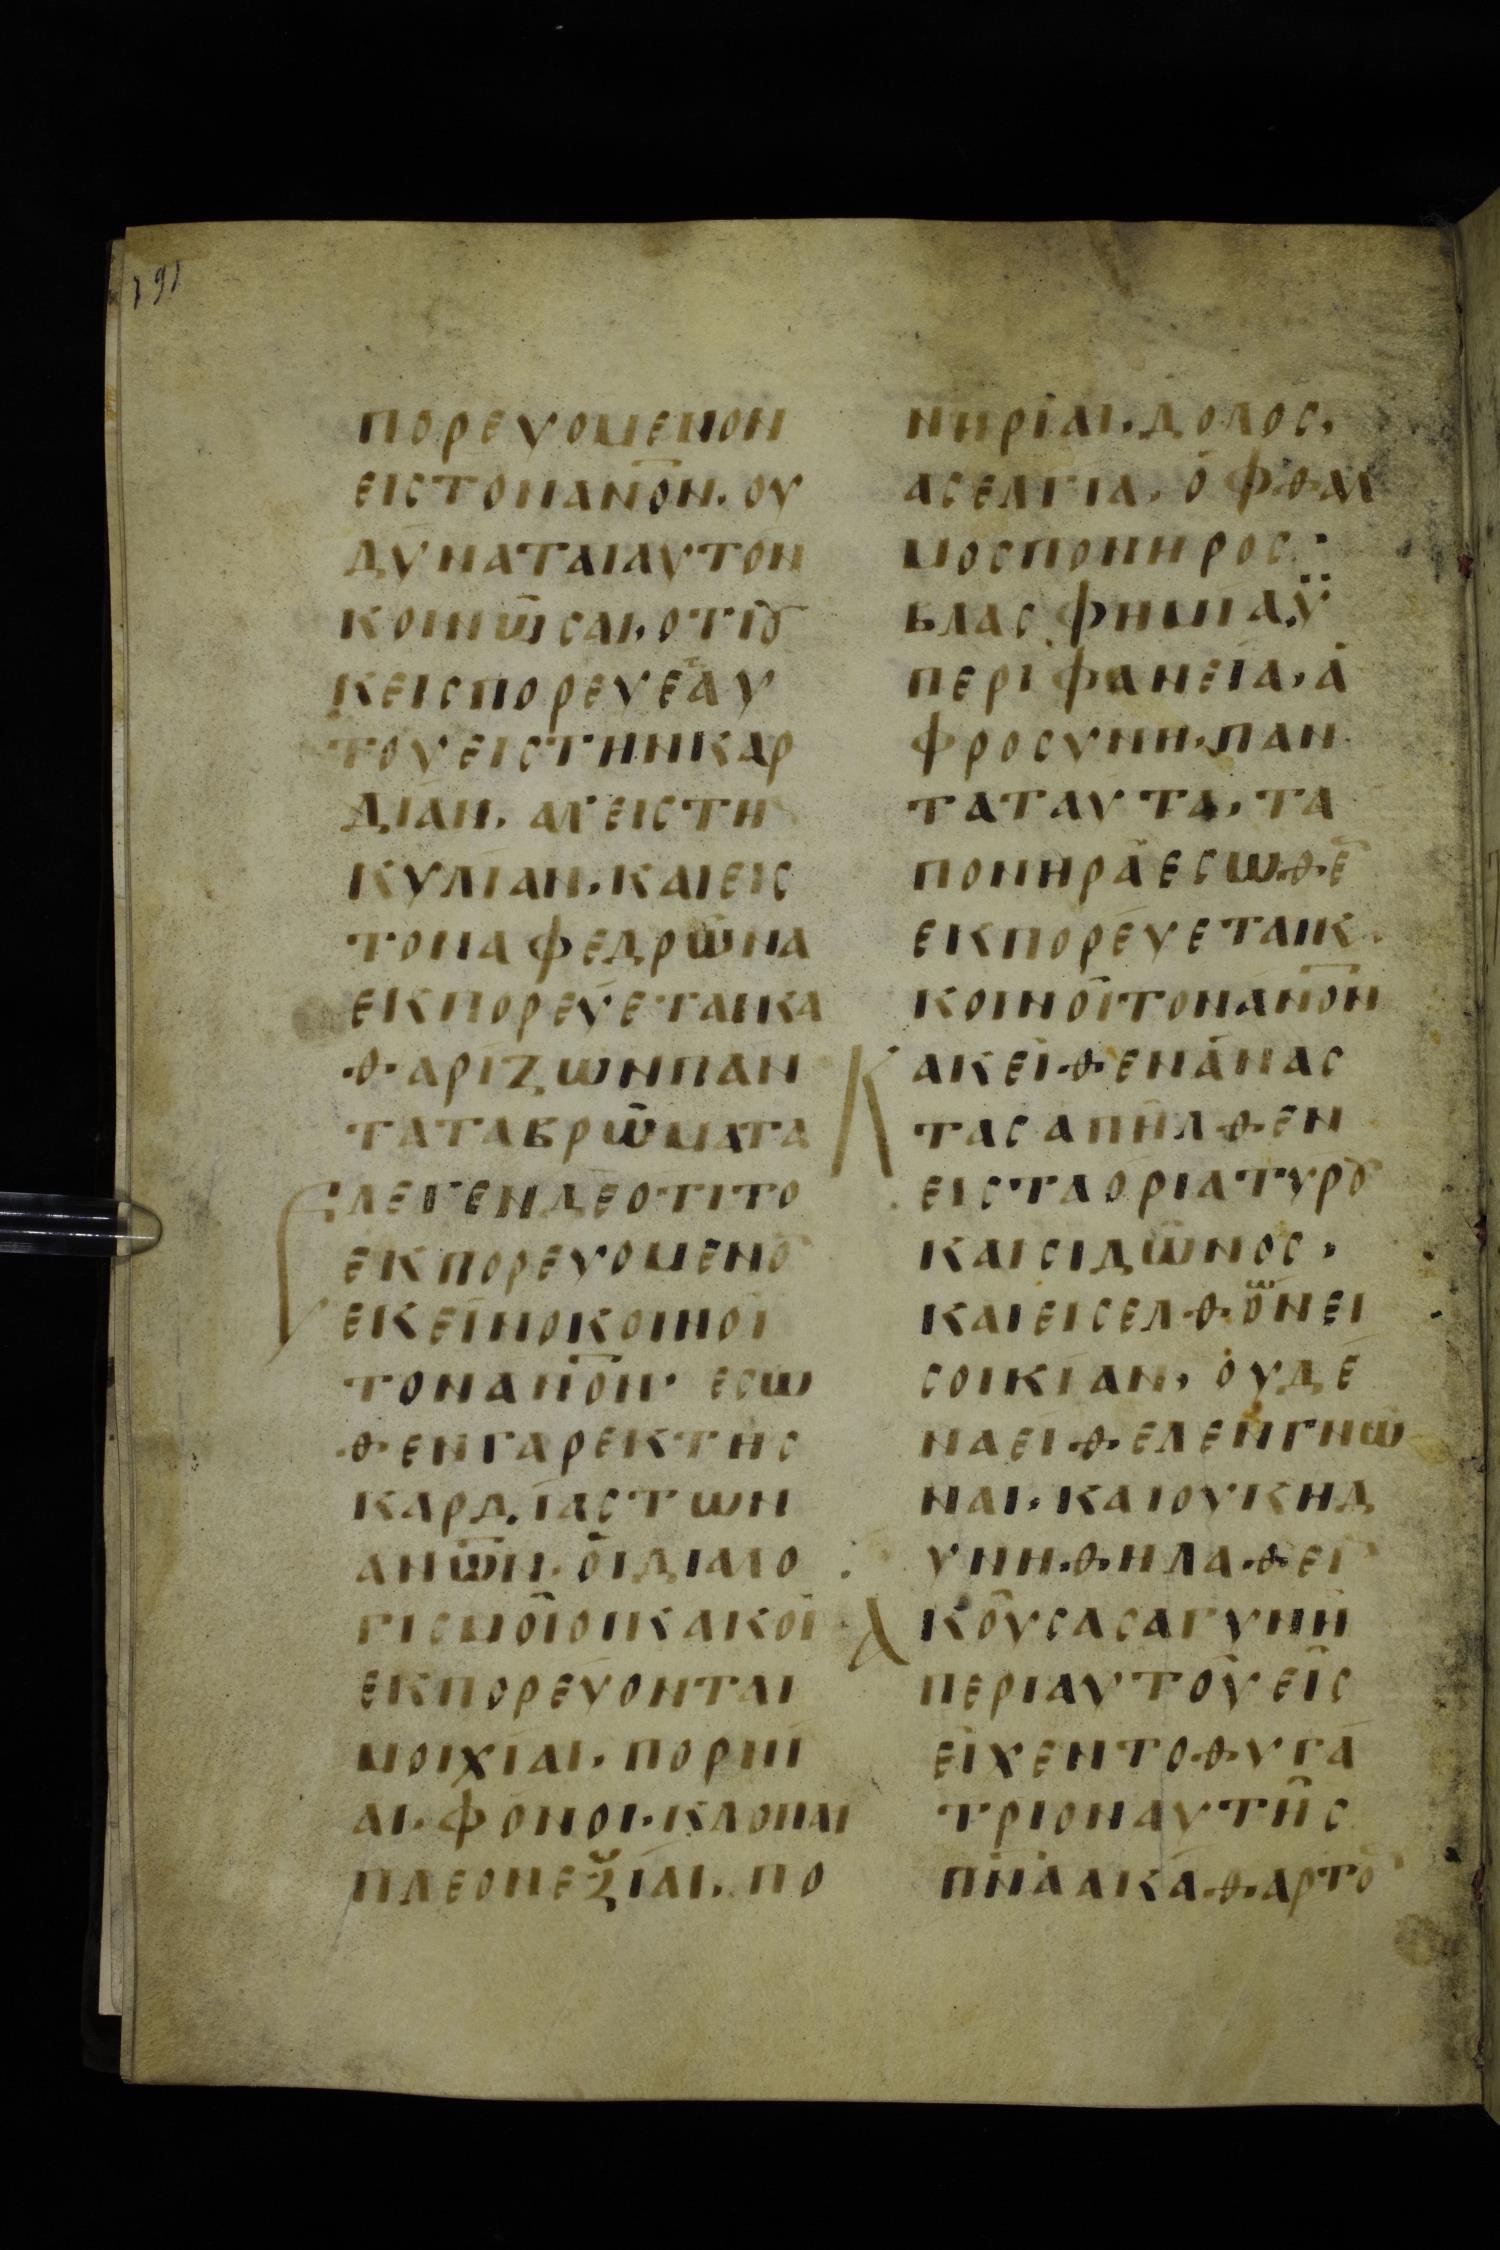 191
ΠΟΡΕΥΟΜΕΝΟΝ
ΕΙΣΤΟΝΑΝ̅Ο̅Ν· ΟΥ
ΔΥΝΑΤΑΙΑΥΤΟΝ
ΚΟΙΝΩΣΑΙ, ΟΤΙȣ
ΚΕΙΣΠΟΡΕΥΕΤΑΥ
ΤΟΥΕΙΣΤΗΝΚΑΡ
ΔΙΑΝ· ΑΛ'ΕΙΣΤΗ
ΚΥΛΙΑΝ· ΚΑΙΕΙΣ
ΤΟΝΑΦΕΔΡΩΝΑ
ΕΚΠΟΡΕΥΕΤΑΙΚΑ
ΘΑΡΙΖΩΝΠΑΝ
ΤΑΤΑΒΡΩΜΑΤΑ
ΕΛΕΓΕΝΔΕΟΤΙΤΟ
ΕΚΠΟΡΕΥΟΜΕΝΟ̅
ΕΚΕΙΝΟΚΟΙΝΟΙ
ΤΟΝΑΝ̅Ο̅Ν· ΕΣΩ
ΘΕΝΓΑΡΕΚΤΗΣ
ΚΑΡΔΙΑΣΤΩΝ
ΑΝ̅Ω̅Ν· ΟΙΔΙΑΛΟ
ΓΙΣΜΟΙΟΙΚΑΚΟΙ
ΕΚΠΟΡΕΥΟΝΤΑΙ
ΜΟΙΧΙΑΙ· ΠΟΡΝΙ
ΑΙ· ΦΟΝΟΙ· ΚΛΟΠΑΙ
ΠΛΕΟΝΕΞΙΑΙ· ΠΟ
ΝΗΡΙΑΙ· ΔΟΛΟΣ,
ΑΣΕΛΓΙΑ· ΟΦΘΑΛ
ΜΟΣΠΟΝΗΡΟΣ:
ΒΛΑΣΦΗΜΙΑ,Ϋ
ΠΕΡΙΦΑΝΕΙΑ, Α
ΦΡΟΣΥΝΗ· ΠΑΝ
ΤΑΤΑΥΤΑ, ΤΑ
ΠΟΝΗΡΑΕΣΩΘΕ̅
ΕΚΠΟΡΕΥΕΤΑΙΚ·
ΚΟΙΝΟΙΤΟΝΑΝ̅Ο̅Ν
ΚΑΚΕΙΘΕΝΑΝΑΣ
ΤΑΣΑΠΗΛΘΕΝ
ΕΙΣΤΑΟΡΙΑΤΥΡȣ
ΚΑΙΣΙΔΩΝΟΣ,
ΚΑΙΕΙΣΕΛΘΟΩΝΕΙ
ΣΟΙΚΙΑΝ, ΟΥΔΕ
ΝΑΕΙΘΕΛΕΝΓΝΩ
ΝΑΙ· ΚΑΙΟΥΚΗΔ
ΥΝΗΘΗΛΑΘΕΙ̅
ΑΚΟΥΣΑΣΑΓΥΝΗ
ΠΕΡΙΑΥΤΟΥΕΙΣ
ΕΙΧΕΝΤΟΘΥΓΑ
ΤΡΙΟΝΑΥΤΗΣ
ΠΝΑΑΚΑΘΑΡΤΟ̅